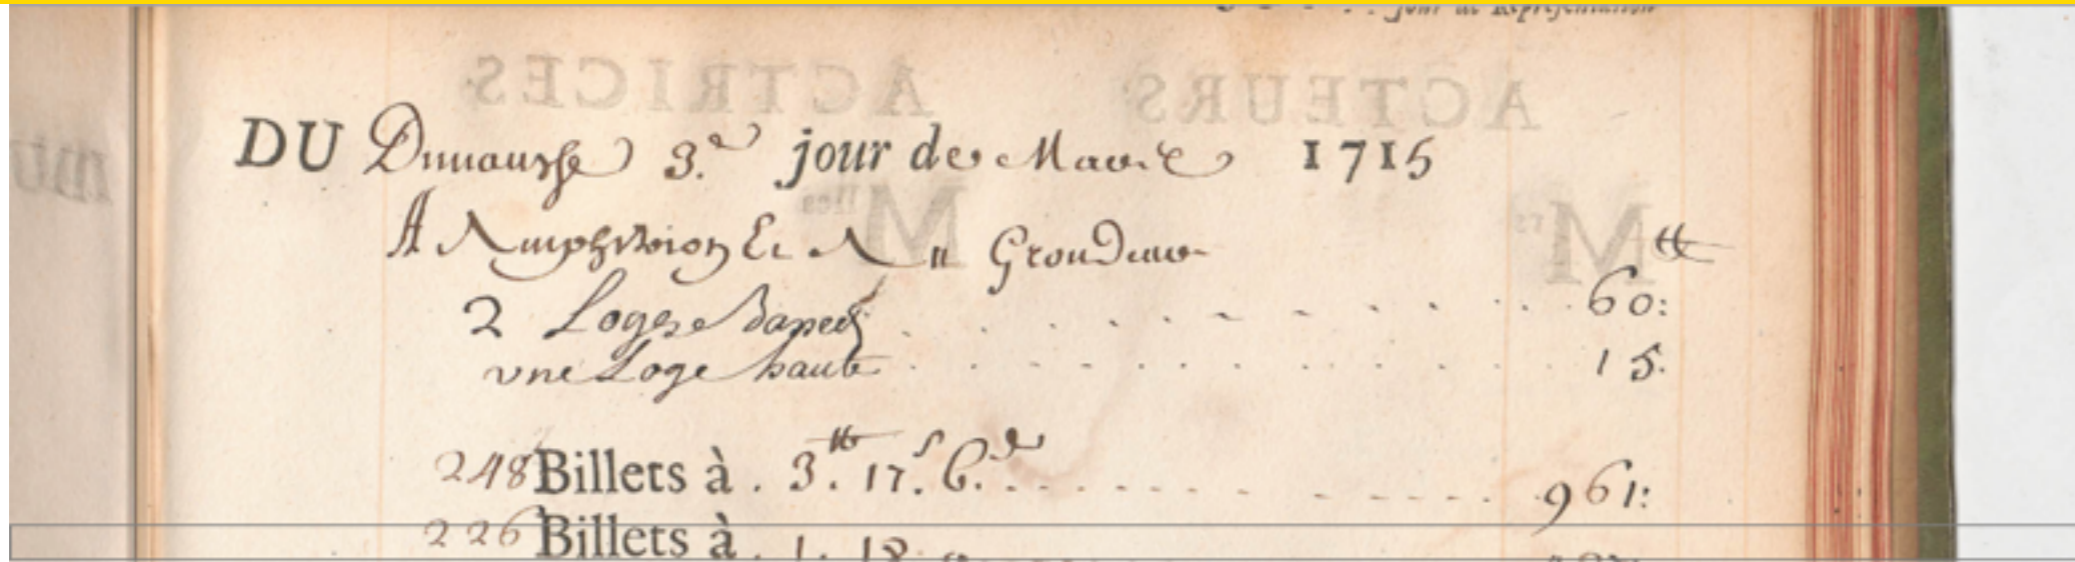 jour de Représentation
ACTRICES ACTEURS
DU Dimanche 3.e jour de Mars 1715
Mlles Mrs
A Amphitrion Et Au Grondeur ₶
2 Loges Basses . . . . . . . . . . 60:
vne Loge haute . . . . . . . . . . 15.
248 Billets à . 3.₶ 17.s 6.d . . . . . . . . . . 961:
226 Billets à . 1. 18. 9